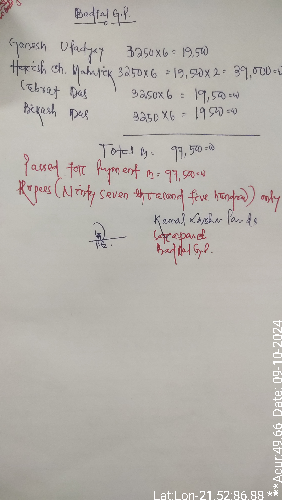 Badpal G.P.
Ganesh Upadhyay 3250x6 = 19,500
Harish Ch. Mahatik 3250x6 = 19,500 x 2 = 39,000=00
Das 3250x6 = 19,500=00
Bikash Das 3250x6 = 19500=00
Total Rs. 97,500=00
Passed for Payment Rs = 97,500=00
Rupees (Ninty seven thousand five hundred) only
Kamal
Badpal G.P.
Lat:Lon-21.52:86.88 ***Acur:49.66 Date: 09-10-2024